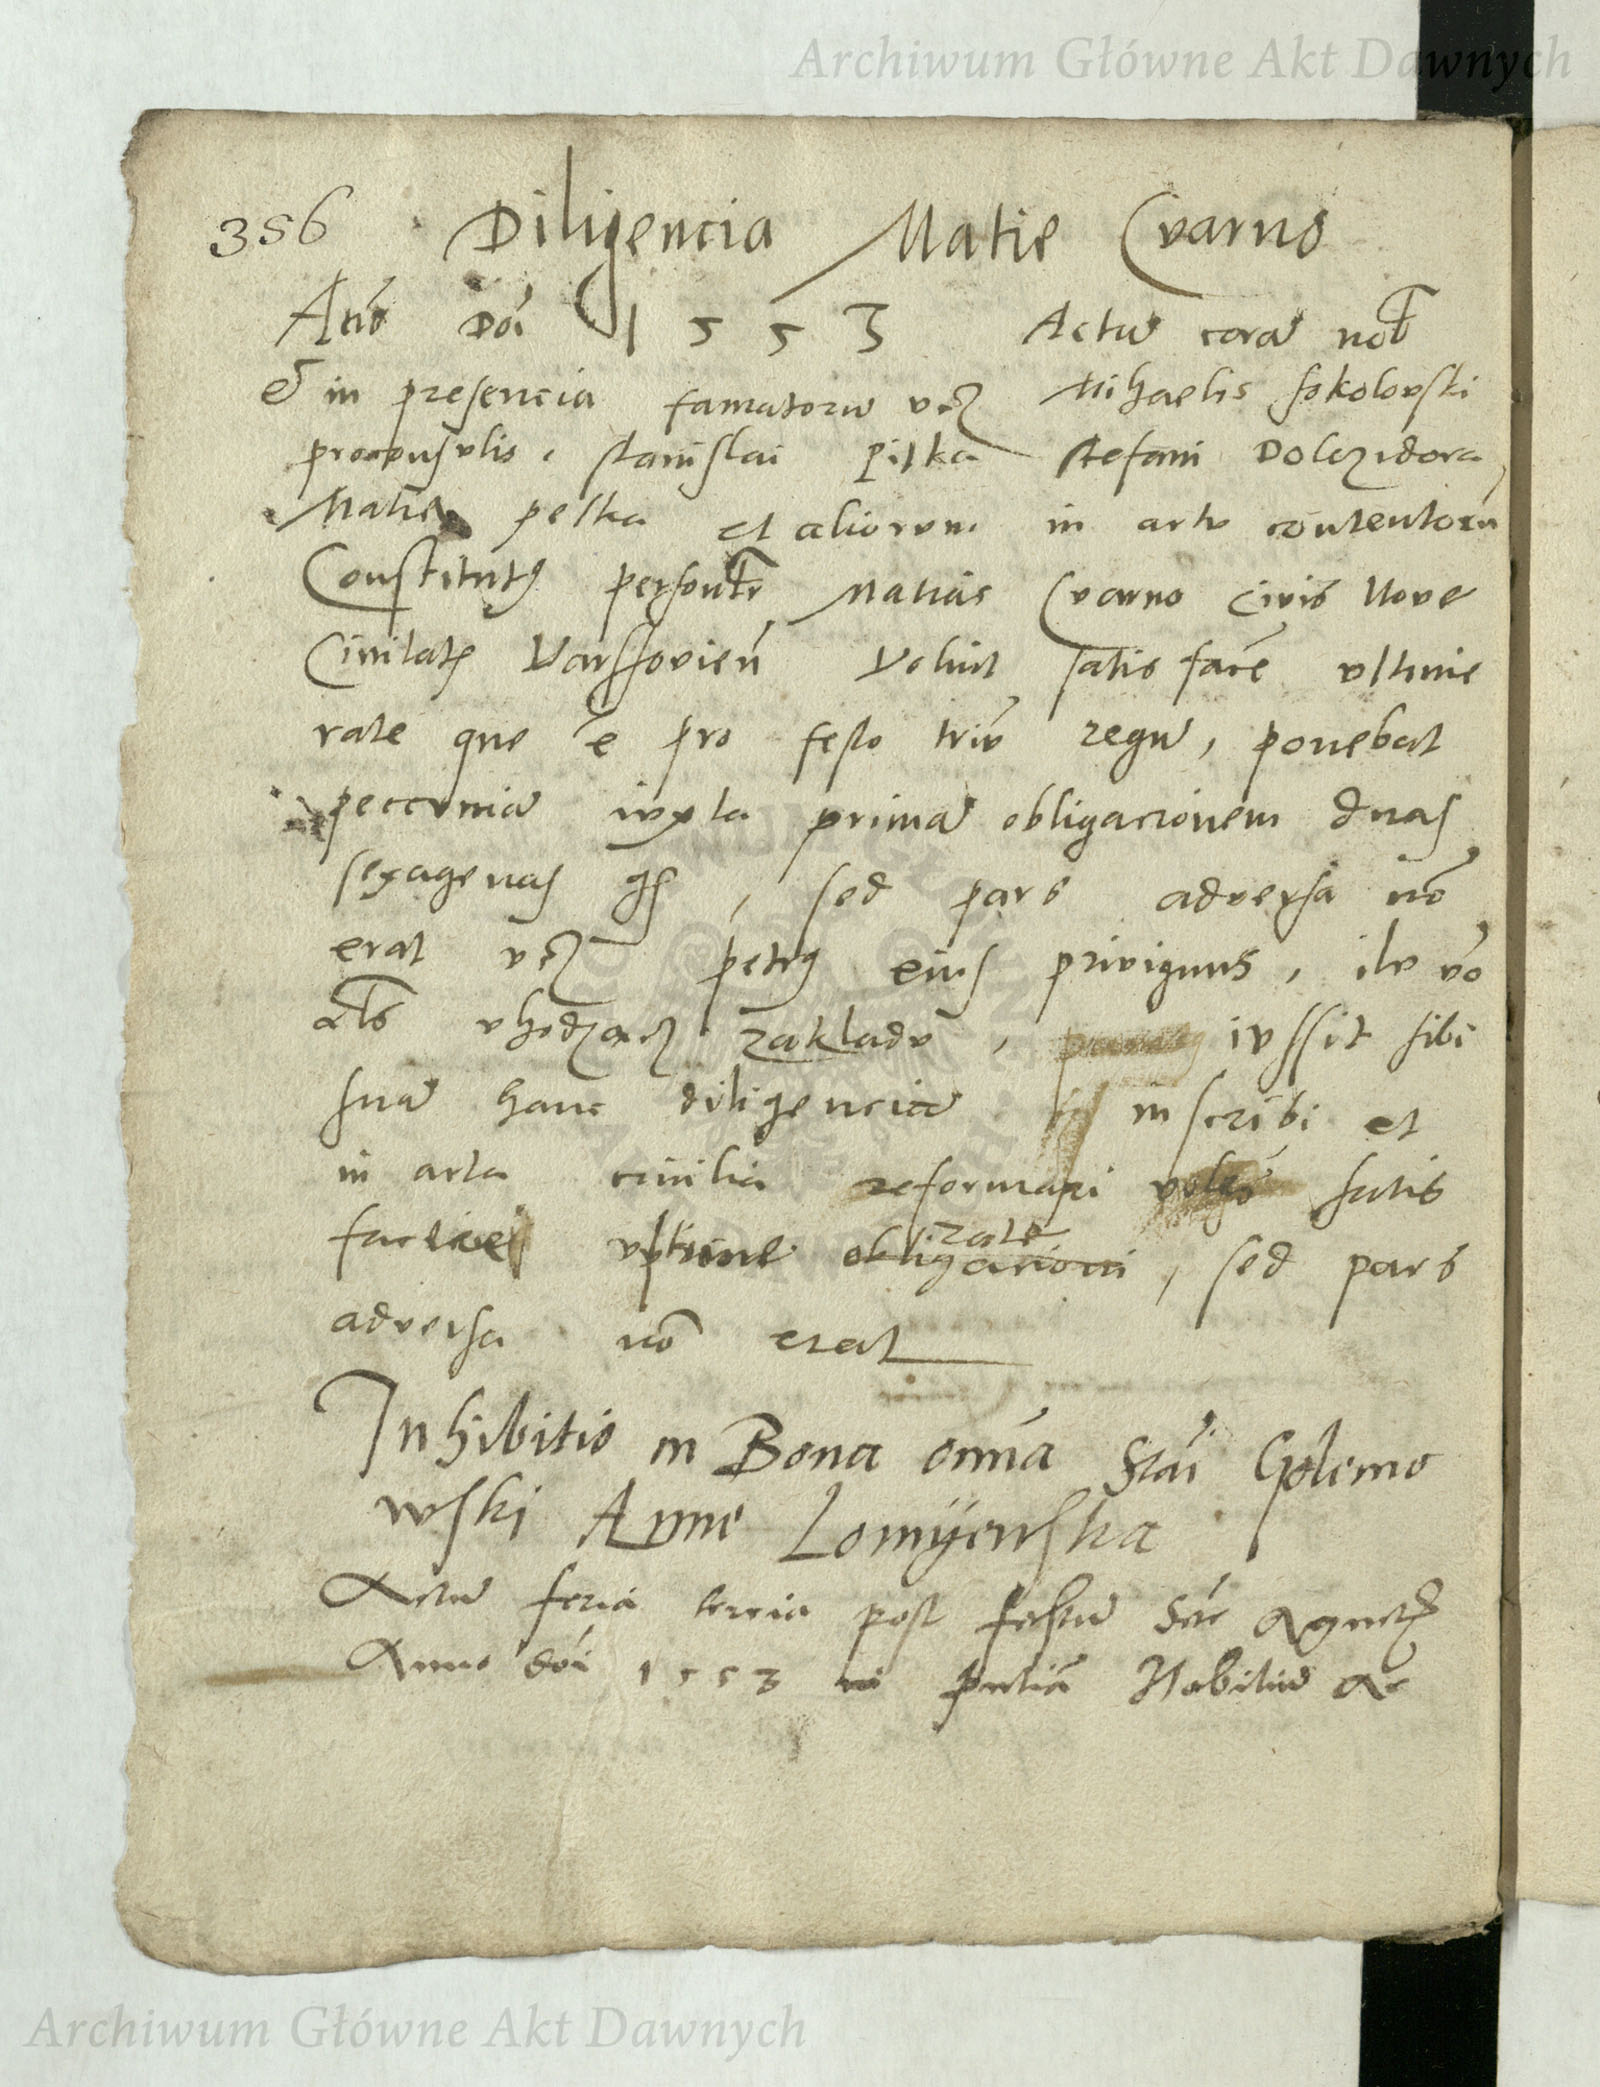 Archiwum Główne Akt Dawnych
356 Diligencia Matie Cvarno
Año Dõi 1553 Actũ corã nob̃
et in presencia famatorũ vcz Mihaelis sokolovski
proconsulis, stanislai pitka stefani Dolezidora,
Matie pelka et aliorum in actv contentorũ
Constitutꝰ personlr̃ Matias Cvarno Civis Nove
Civitatꝭ Varssovieñ Voluit satis facẽ ultime
rate que ẽ pro festo triũ regũ, ponebat
peccuniã ivxta primã obligacionem duas
sexagenas gs, sed pars adversa nõ
erat vcz petrꝰ eius privignus, ilv võ
als vhodzacz zakladv, iussit sibi
suã hanc diligenciã inscribi et
in acta civilia reformari volẽs satis
facere ultime rate obligacioni, sed pars
adversa nõ erat
Inhibitio in Bona omĩa Stãi Golemo
wski Anne Lomÿenska
Actũ feria tercia post festũ Stẽ Agnetꝭ
Anno dõi 1553 in pñtiã Nobiliũ Ac
Archiwum Główne Akt Dawnych